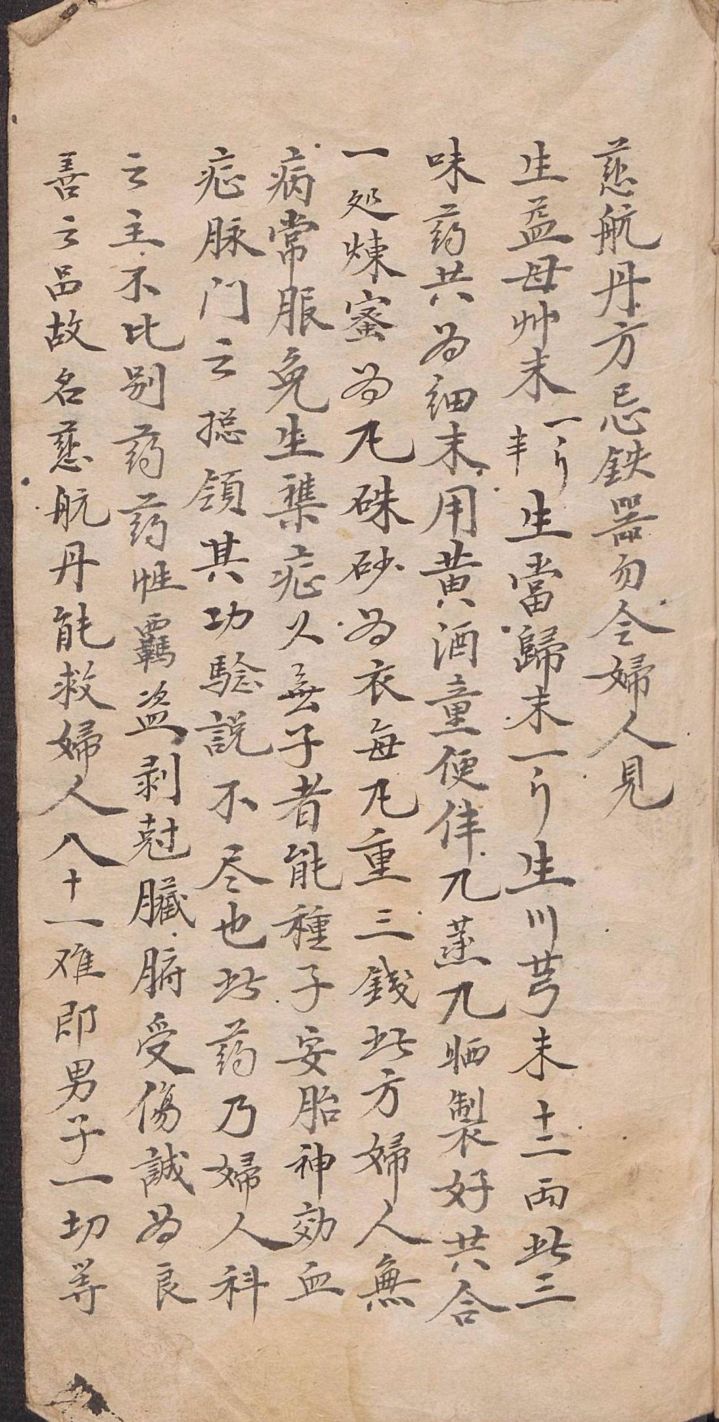 慈航丹方忌鉄噐勿令婦人見
生益母艸末一斤半生當歸末一斤生川芎末十二両此三
味药共为細末用黄酒童便伴九蒸九晒製好共合
一处煉蜜为丸硃砂为衣每丸重三錢此方婦人無
病常服免生雜症久無子者能種子安胎神効血
症脉门之揔領其功驗說不尽也此药乃婦人科
之主不比别药药性霸盗剥尅臓腑受傷誠为良
善之品故名慈航丹能救婦人八十一难即男子一切等